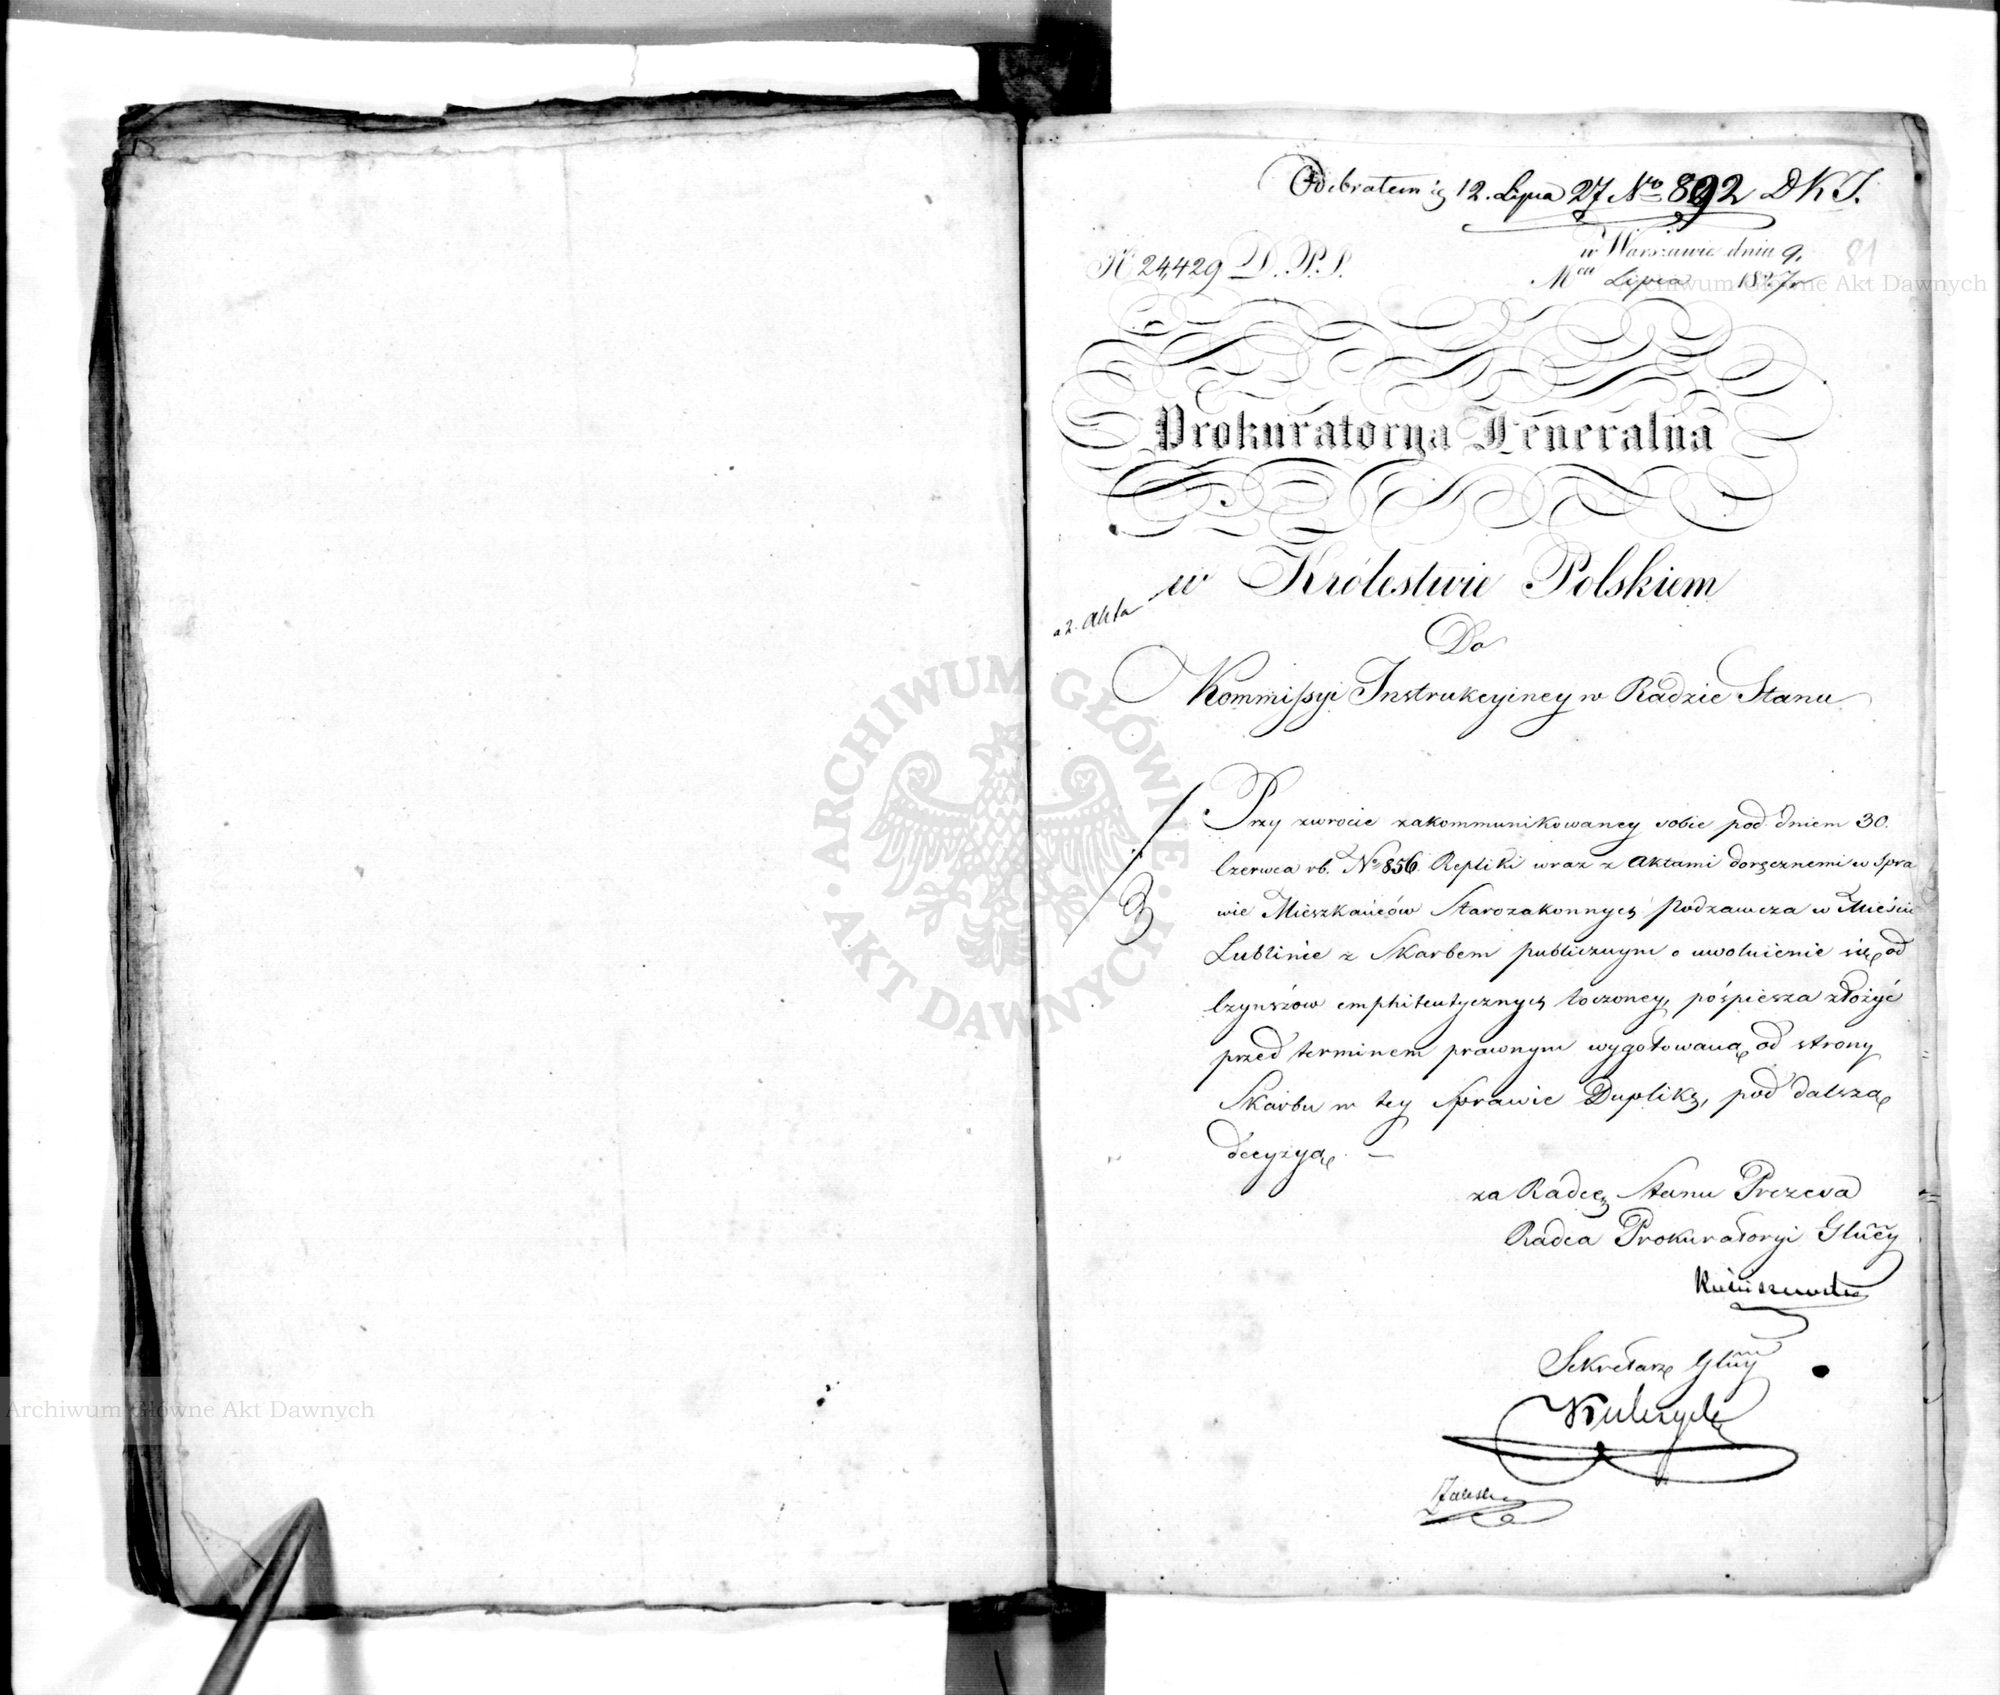 Odebrałem 12. Lipca 27 No 892 DKI.
N 24,429 D.P.S.
w Warszawie dnia 9.
Mca Lipca 1827
81
Archiwum Główne Akt Dawnych
Prokuratorya Jeneralna
w Królestwie Polskiem
a 2. Akta
Do
Kommissyi Instrukcyiney w Radzie Stanu
ARCHIWUM GŁÓWNE AKT DAWNYCH
Przy zwrocie zakommunikowaney sobie pod dniem 30.
Czerwca rb. No 856. Repliki wraz z Aktami doręcznemi w Spra
wie Mieszkańców Starozakonnych Podzamcza w Mieście
Lublinie z Skarbem publicznym o uwolnienie się od
Czynszów emphiteutycznych toczoney, pośpiesza złożyć
przed terminem prawnym wygotowaną od strony
Skarbu w tey Sprawie Duplikę, pod dalszą
decyzyą. —
za Radcę Stanu Prezesa
Radca Prokuratoryi Glney
Sekretarz Glny
Kulczycki
Zaleski
Archiwum Główne Akt Dawnych